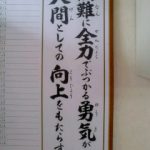 難に全力でぶつかる勇気が
人間としての向上をもたらす